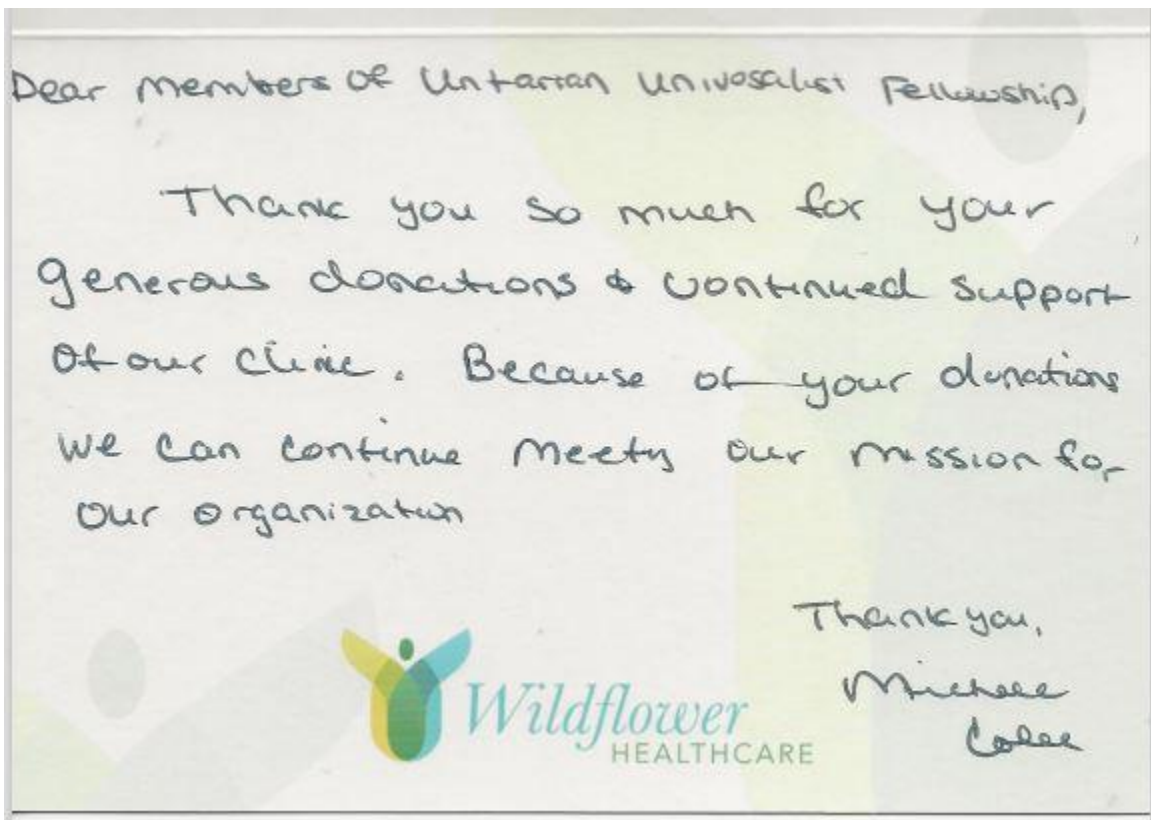 Dear members of Untarian Univosalist Fellowship,
Thank you so much for your
generous donations & continued support
of our clinic. Because of your donations
we can continue meetng our mission for
our organization
Thank you,
Michele
Wildflower
HEALTHCARE